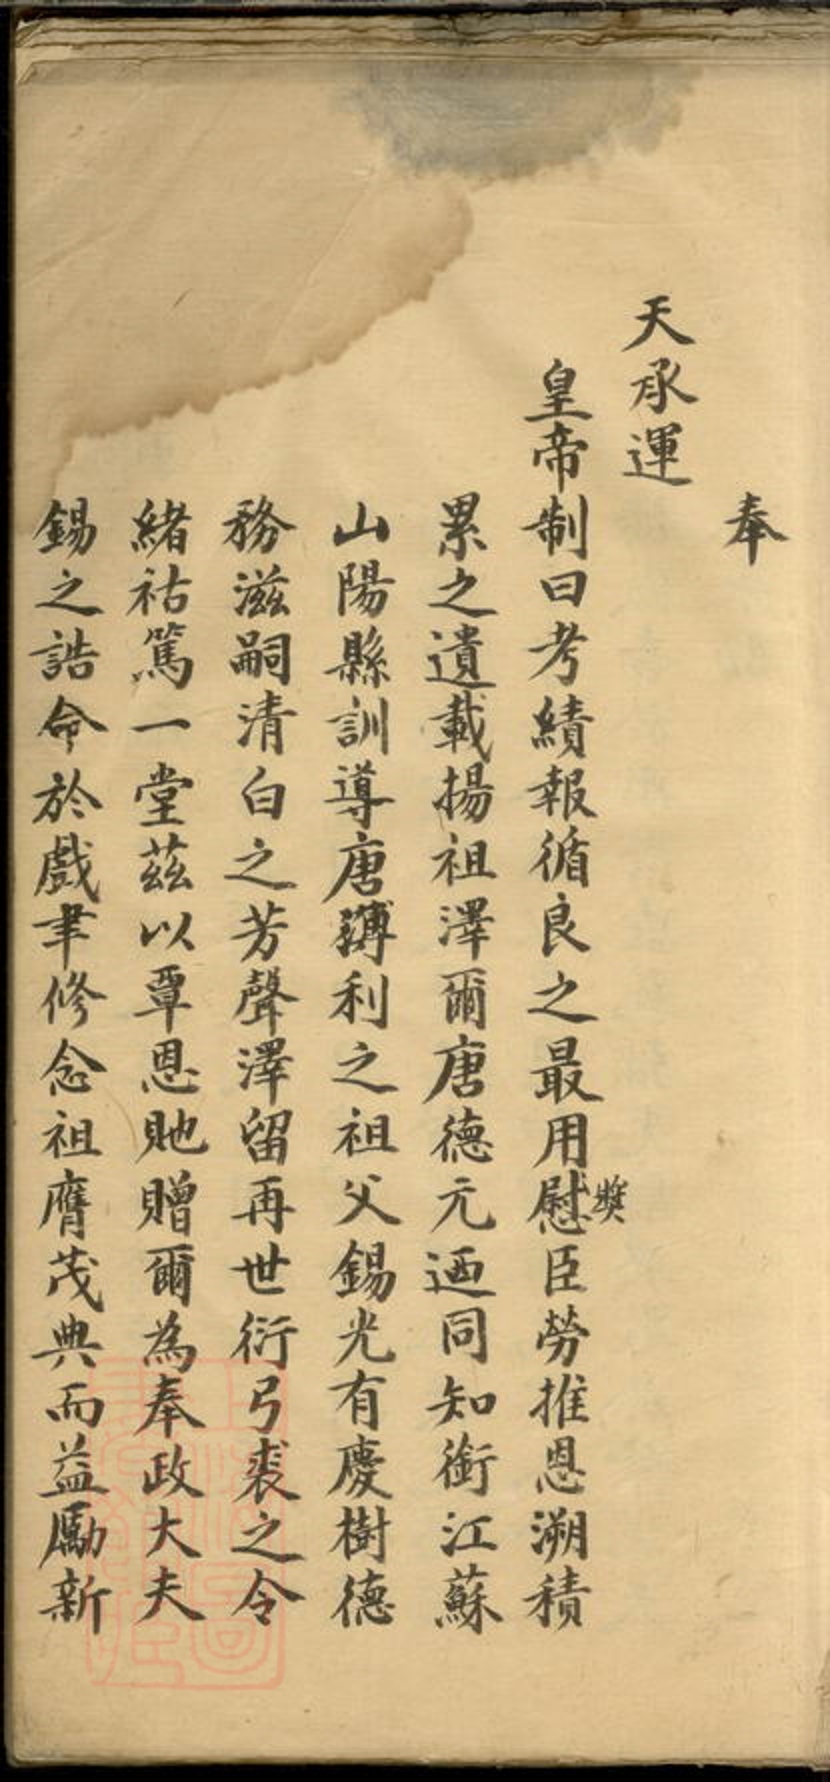 奉
天承運
皇帝制曰考績報循良之最用慰臣勞推恩溯積
獎
累之遺載揚祖澤爾唐德元迺同知銜江蘇
山陽縣訓導唐鏄利之祖父錫光有慶樹德
務滋嗣清白之芳聲澤留再世衍弓裘之令
緒祜篤一堂茲以覃恩貤贈爾為奉政大夫
錫之誥命於戲聿修念祖膺茂典而益勵新